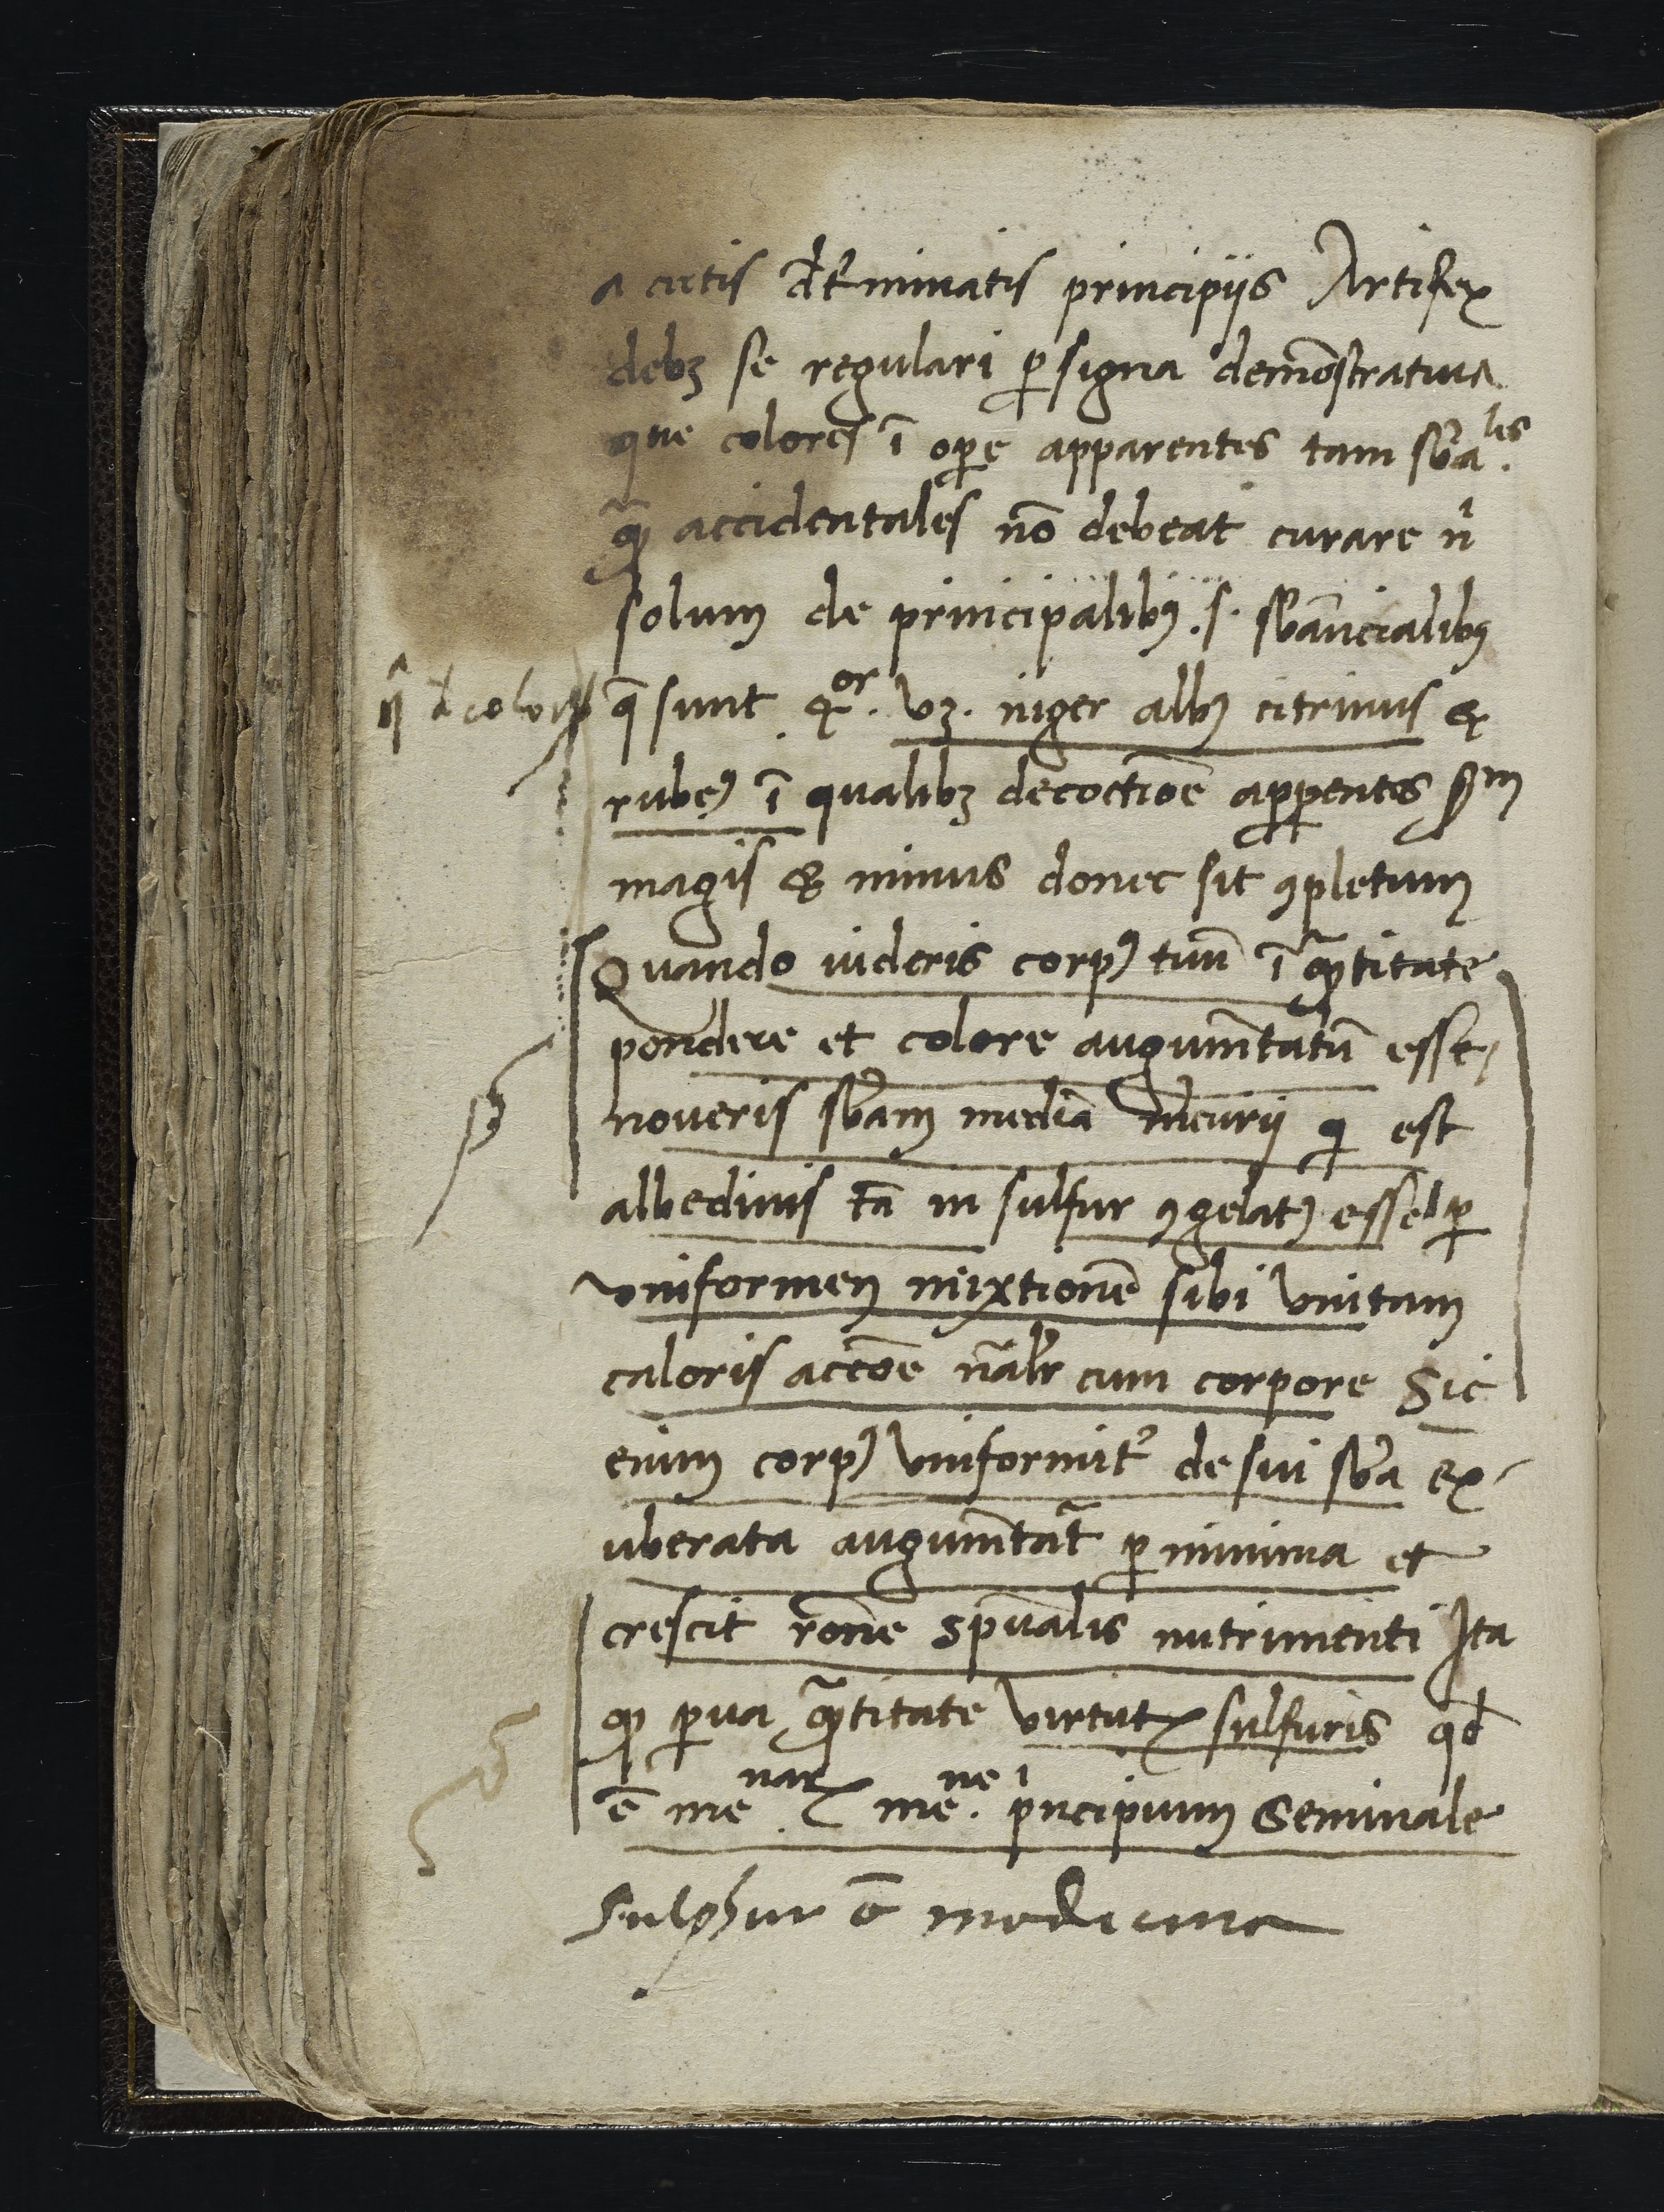 a certis det̄minatis principijs Artifex
debꝫ se regulari ꝑ signa demōstratiua
que colores ī oꝑe apparentes tam sƀaˡᵉˢ.
qᷓ accidentales nō debeat curare n̂
solum de principalibꝰ .s. sƀancialibꝰ
q̄ sunt 4ᵒʳ. vꝫ. niger albꝰ citrinus &
rubeꝰ ī qualibꝫ decoctiōe apꝑentes ẜᵐ
magis & minus donec sit ꝯpletum
Quando uideris corpꝰ tuū ī qᷓtitate
pondere et colore augumētatū esse,
noueris sƀam mediā mēcurij q est
albedinis tā in sulfur ꝯgelatꝰ esse ꝑ
vniformem mixtionē sibi vnitam
caloris acc̄oe nāl̄r cum corpore Sic
enim corpꝰ vniformit᷒ de sui sƀa ex-
uberata augumētat᷒ ꝑ minima et
crescit rōne sp̄ualis nutrimenti Ita
ꝙ ꝑua qᷓtitate virtutꝭ sulfuris qđ
ē meⁿᵃʳ meⁿᵉ. pⁱncipium Seminale
Sulphur ē medicina